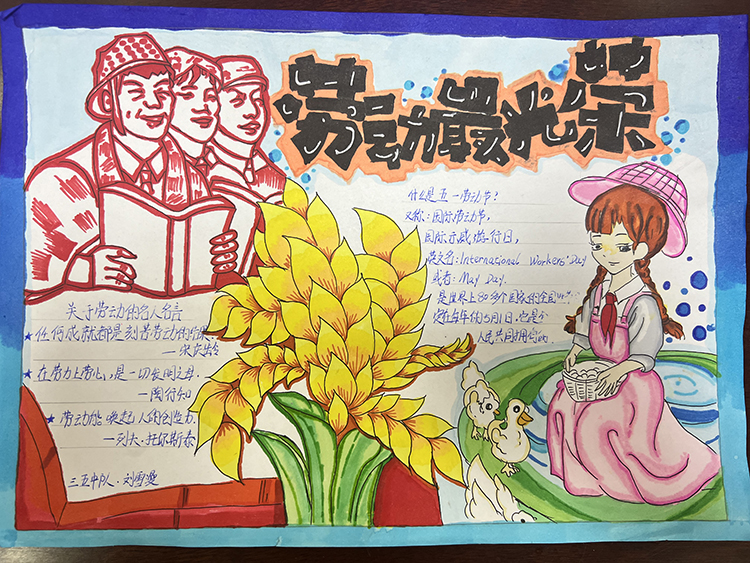 劳动最光荣
什么是五一劳动节?
又称:国际劳动节,
国际示威游行日,
英文名:International Workers' Day
或者:May Day.
是世界上80多个国家的全国
定在每年的5月1日.它是全
人民共同拥有的
关于劳动的名人名言
★任何成就都是刻苦劳动的结果.
—宋庆龄
★在劳力上劳心,是一切发明之母.
—陶行知
★劳动能唤起人的创造力.
—列夫·托尔斯泰
三五中队:刘雪